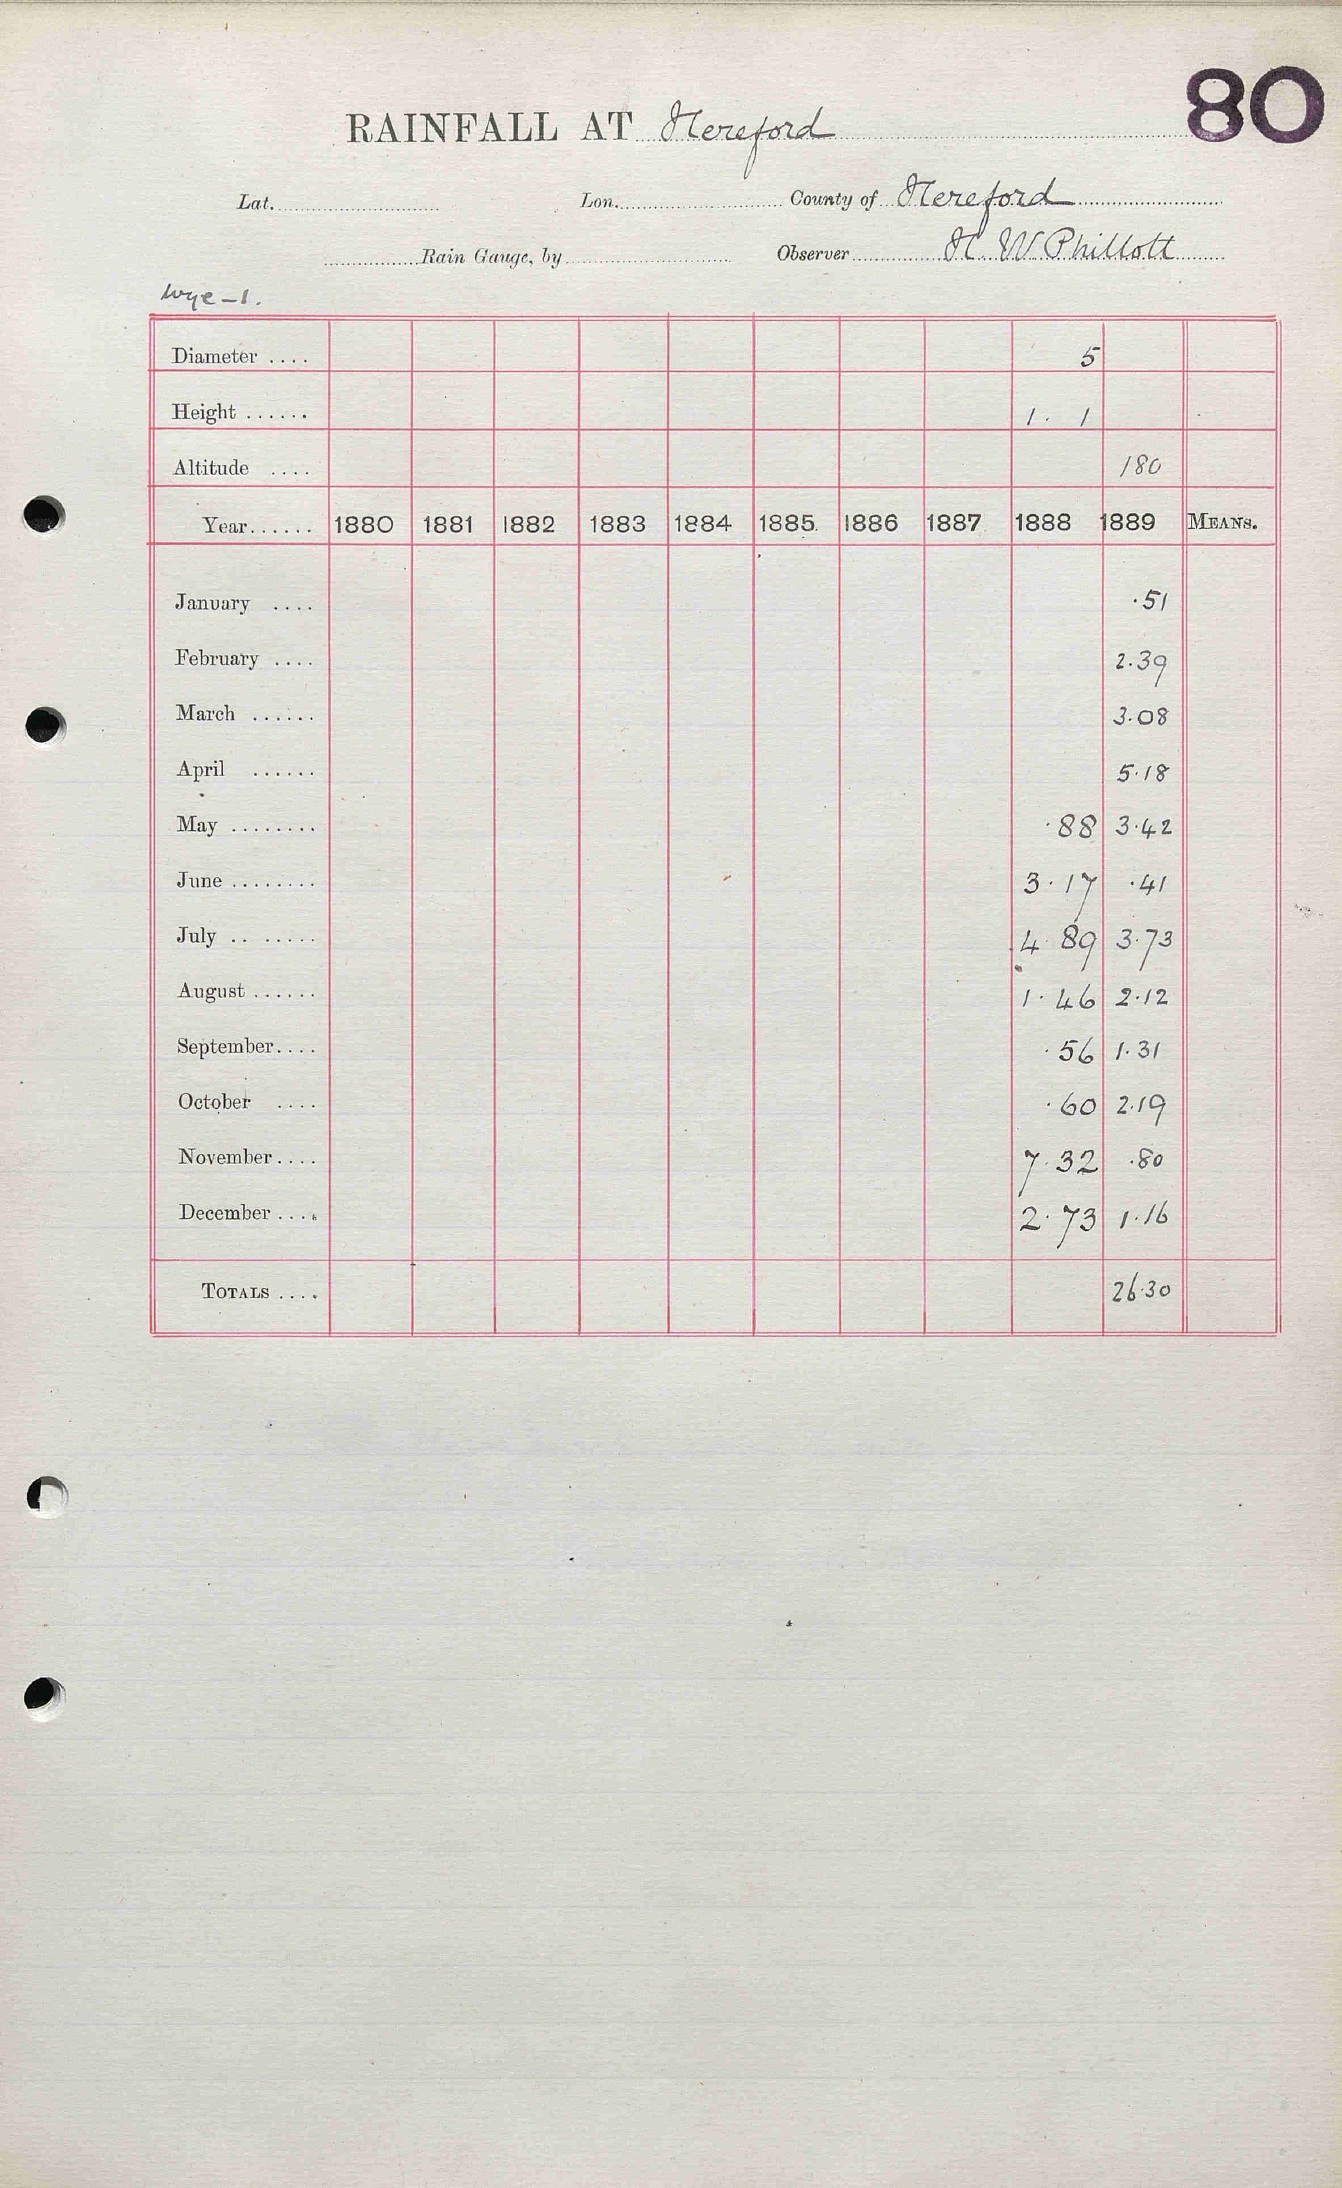 80
RAINFALL AT Hereford
Lat. Lon. County of Hereford
Rain Gauge, by Observer H. W Phillott
Wye-1.
Diameter .... 5
Height ...... 1. 1
Altitude .... 180
Year...... 1880 1881 1882 1883 1884 1885. 1886 1887 1888 1889 MEANS.
January .... .51
February .... 2.39
March ...... 3.08
April ...... 5.18
May ........ .88 3.42
June ........ 3.17 .41
July .. ...... 4.89 3.73
August ...... 1.46 2.12
September.... .56 1.31
October .... .60 2.19
November.... 7.32 .80
December .... 2.73 1.16
TOTALS .... 26.30